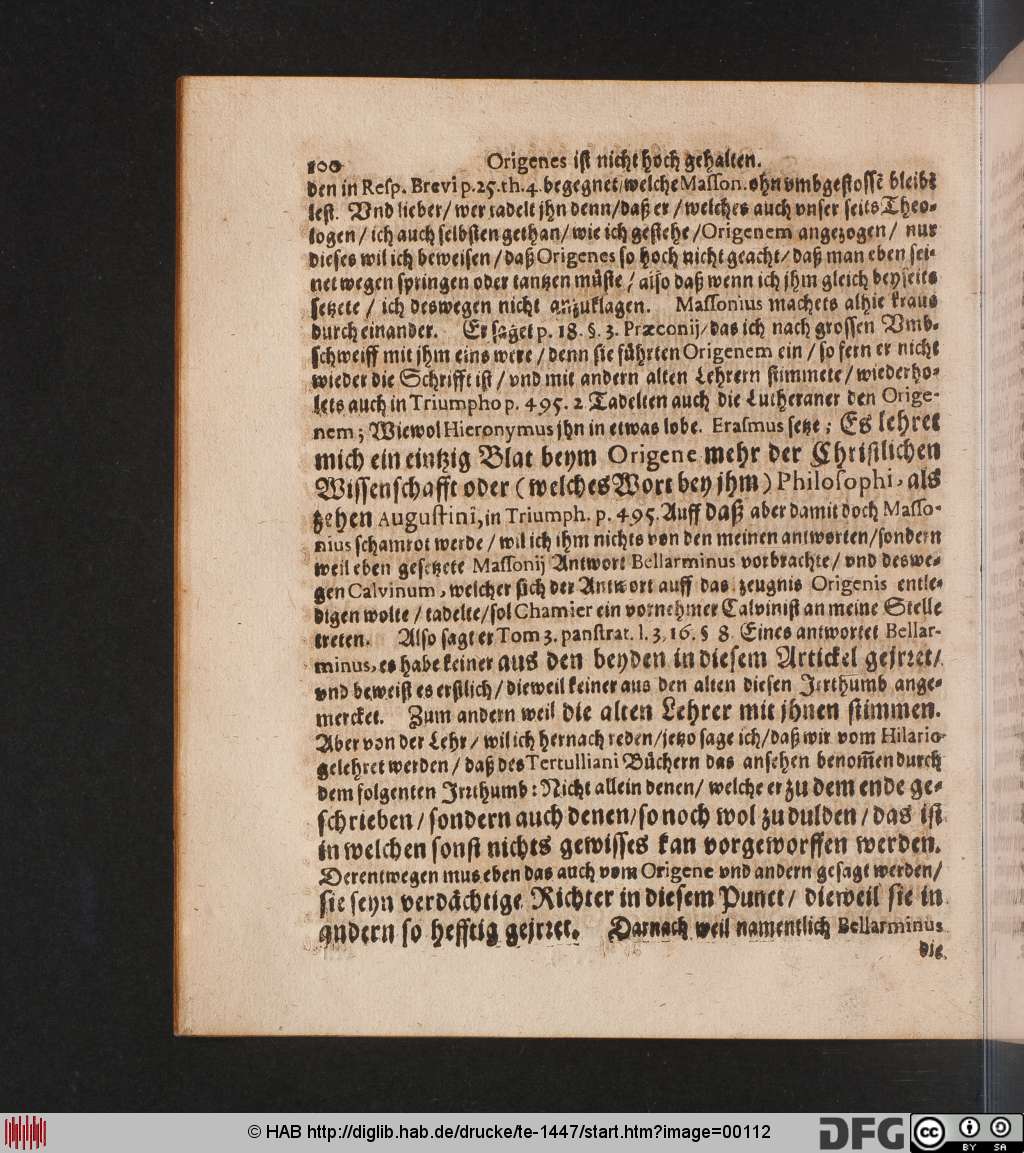 100 Origenes ist nicht hoch gehalten.
den in Resp. Brevi p. 25. th. 4. begegnet/welche Masson. ohn vmbgestossē bleibē
lest. Vnd lieber/ wer tadelt jhn denn/daß er/welches auch vnser seits Theo-
logen/ich auch selbsten gethan/wie ich gestehe/Origenem angezogen/ nur
dieses wil ich beweisen/daß Origenes so hoch nicht geacht/daß man eben sei-
net wegen springen oder tantzen müste/ also daß wenn ich jhm gleich beyseits
setzete / ich deswegen nicht anzuklagen. Massonius machets alhie kraus
durch einander. Er saget p. 18. §. 3. Præconij/das ich nach grossen Vmb-
schweiff mit jhm eins were/denn sie führten Origenem ein/so fern er nicht
wieder die Schrifft ist/vnd mit andern alten Lehrern stimmete/wiederho-
lets auch in Triumpho p. 495. 2 Tadelten auch die Lutheraner den Orige-
nem; Wiewol Hieronymus jhn in etwas lobe. Erasmus setze; Es lehret
mich ein eintzig Blat beym Origene mehr der Christlichen
Wissenschafft oder (welches Wort bey jhm) Philosophi, als
zehen Augustini, in Triumph. p. 495. Auff daß aber damit doch Masso-
nius schamrot werde/wil ich ihm nichts von den meinen antworten/sondern
weil eben gesetzete Massonij Antwort Bellarminus vorbrachte/ vnd deswe-
gen Calvinum, welcher sich der Antwort auff das zeugnis Origenis entle-
digen wolte/tadelte/sol Chamier ein vornehmer Calvinist an meine Stelle
treten. Also sagt er Tom 3. panstrat. l. 3. 16. § 8 Eines antwortet Bellar-
minus, es habe keiner aus den beyden in diesem Artickel gejrret/
vnd beweist es erstlich/dieweil keiner aus den alten diesen Jrrthumb ange-
mercket. Zum andern weil die alten Lehrer mit jhnen stimmen.
Aber von der Lehr/wil ich hernach reden/jetzo sage ich/daß wir vom Hilario
gelehret werden/daß des Tertulliani Büchern das ansehen benom̄en durch
dem folgenten Jrrthumb: Nicht allein denen/welche er zu dem ende ge-
schrieben/sondern auch denen/so noch wol zu dulden/das ist
in welchen sonst nichts gewisses kan vorgeworffen werden.
Derentwegen mus eben das auch vom Origene vnd andern gesagt werden/
sie seyn verdächtige Richter in diesem Punct/ dieweil sie in
andern so hefftig gejrret. Darnach weil namentlich Bellarminus
die
© HAB http://diglib.hab.de/drucke/te-1447/start.htm?image=00112
DFG
cc BY SA